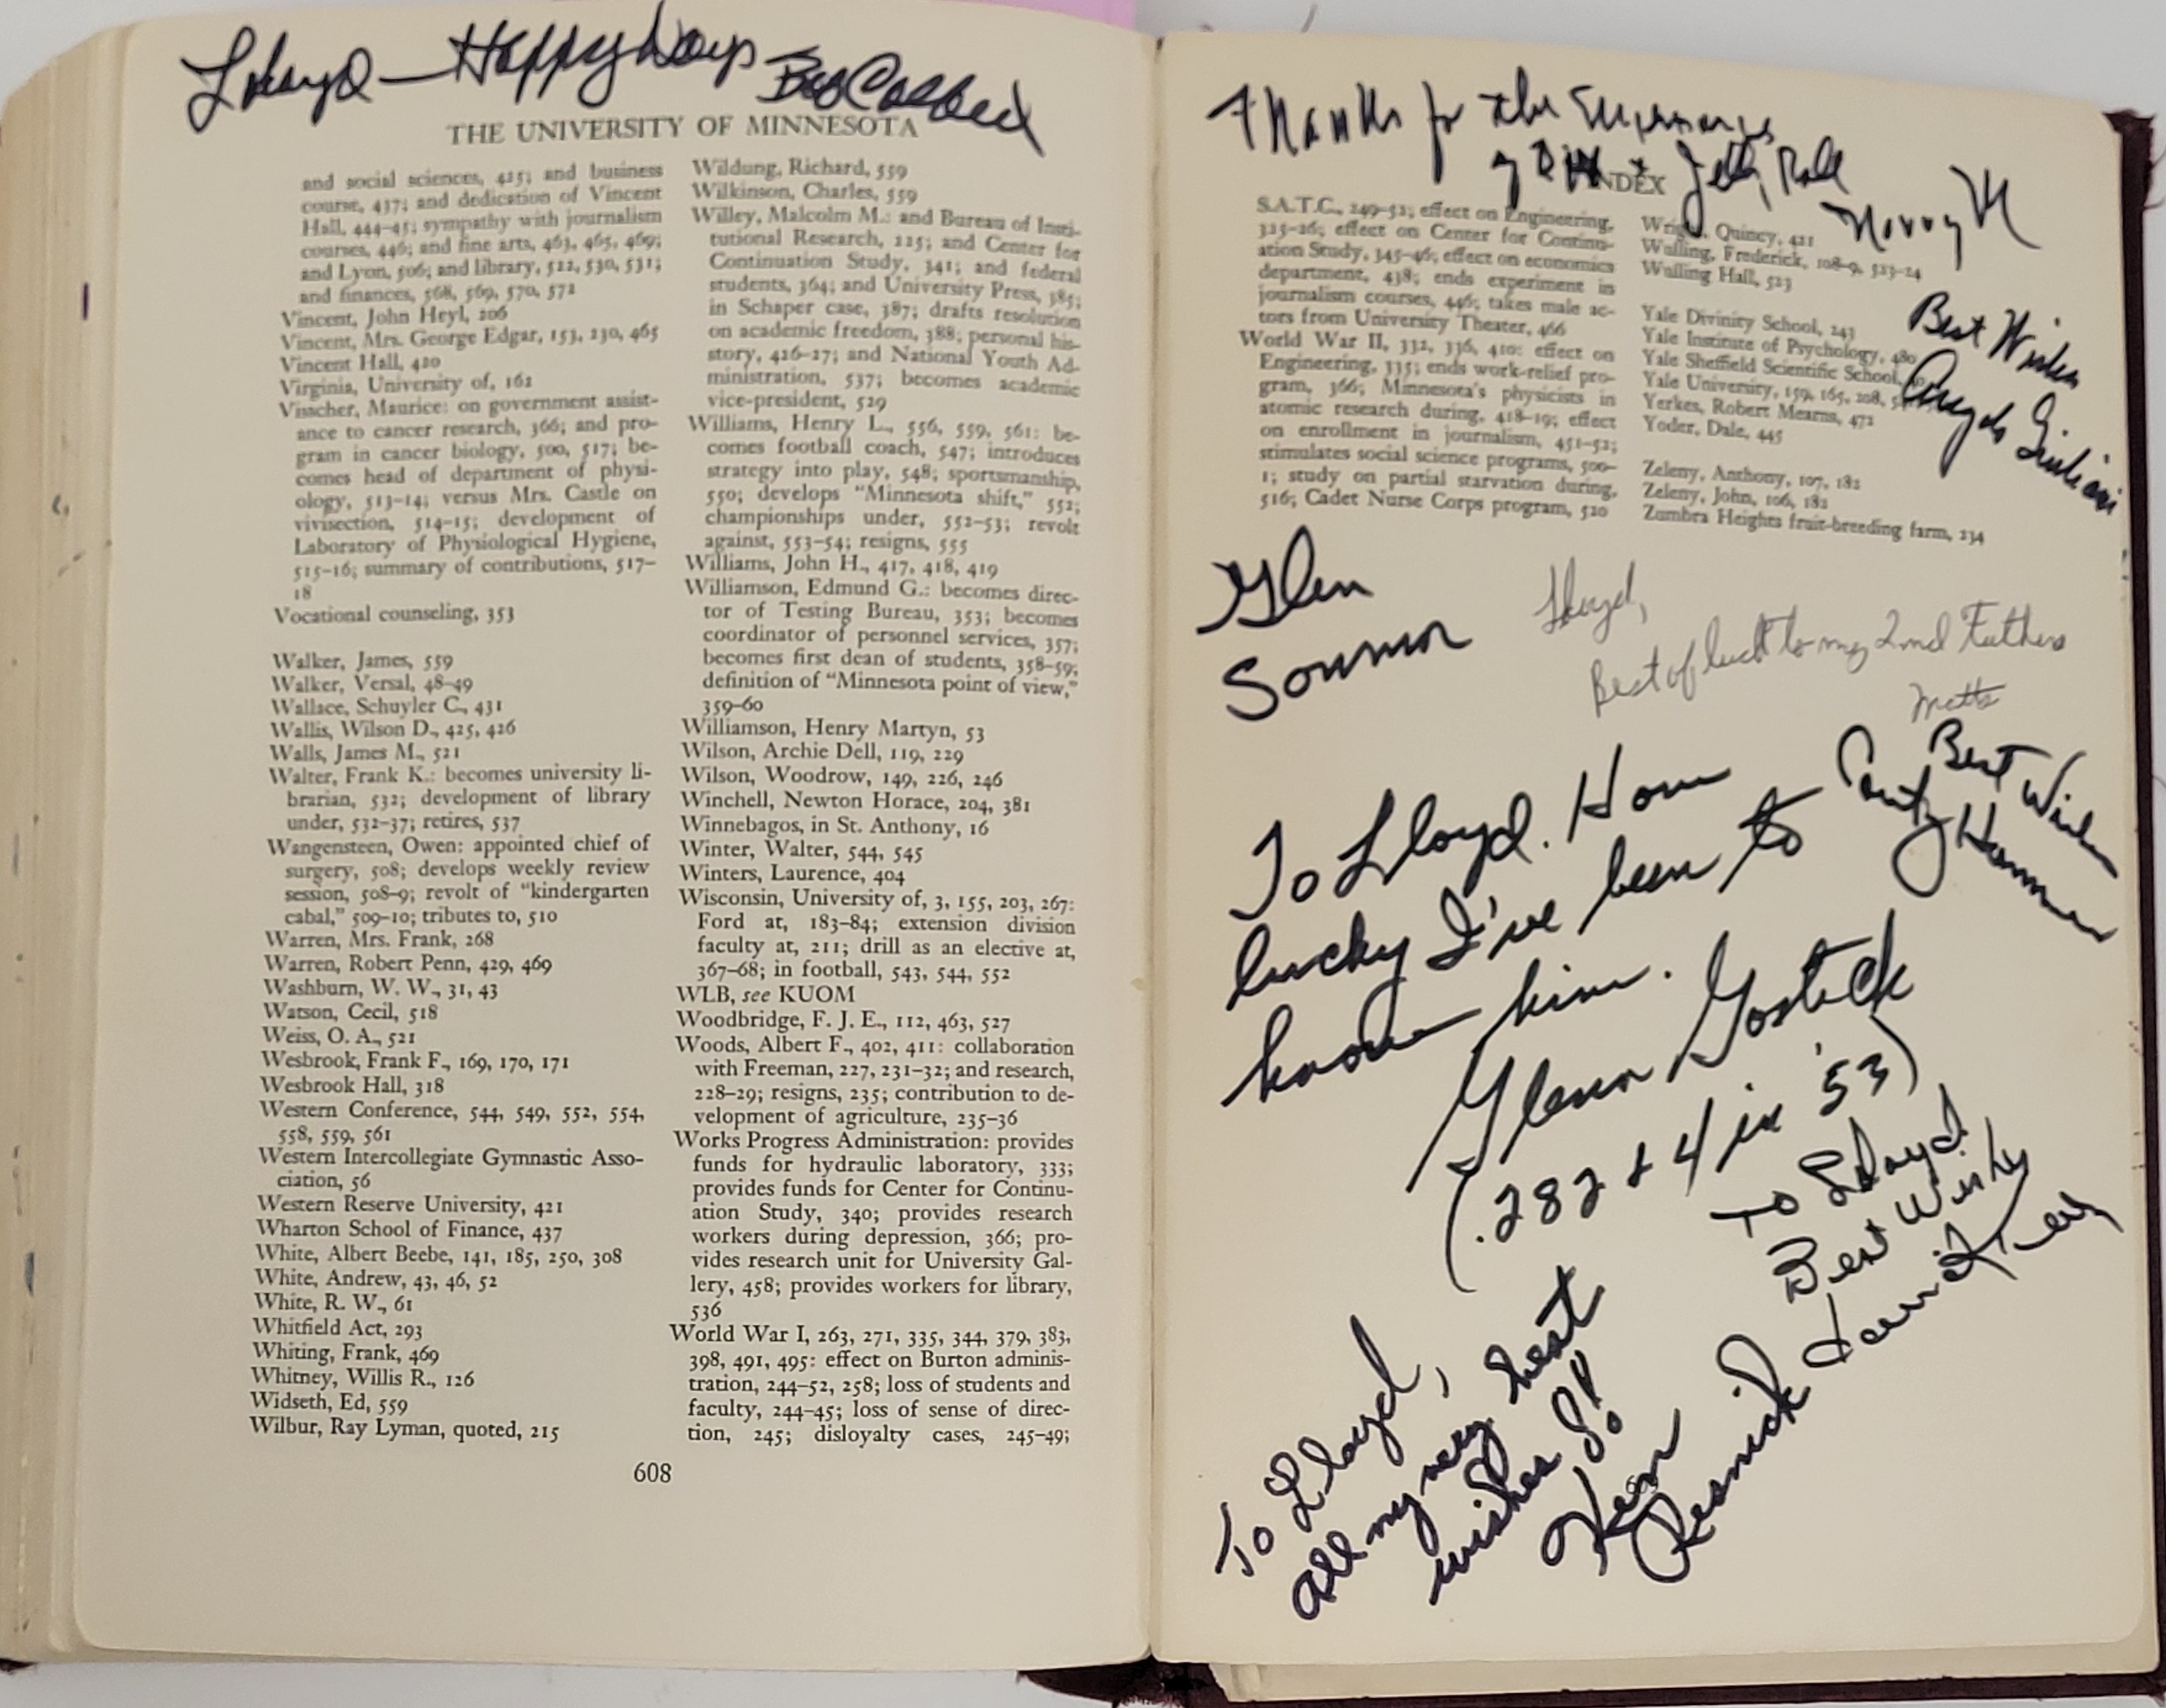 Lloyd — Happy Days Bob
THE UNIVERSITY OF MINNESOTA
and social sciences, 425; and business
course, 437; and dedication of Vincent
Hall, 444–45; sympathy with journalism
courses, 446; and fine arts, 463, 465, 469;
and Lyon, 506; and library, 522, 530, 531;
and finances, 568, 569, 570, 572
Vincent, John Heyl, 206
Vincent, Mrs. George Edgar, 153, 230, 465
Vincent Hall, 420
Virginia, University of, 162
Visscher, Maurice: on government assist-
ance to cancer research, 366; and pro-
gram in cancer biology, 500, 517; be-
comes head of department of physi-
ology, 513–14; versus Mrs. Castle on
vivisection, 514–15; development of
Laboratory of Physiological Hygiene,
515–16; summary of contributions, 517–
18
Vocational counseling, 353
Walker, James, 559
Walker, Versal, 48–49
Wallace, Schuyler C., 431
Wallis, Wilson D., 425, 426
Walls, James M., 521
Walter, Frank K.: becomes university li-
brarian, 532; development of library
under, 532–37; retires, 537
Wangensteen, Owen: appointed chief of
surgery, 508; develops weekly review
session, 508–9; revolt of "kindergarten
cabal," 509–10; tributes to, 510
Warren, Mrs. Frank, 268
Warren, Robert Penn, 429, 469
Washburn, W. W., 31, 43
Watson, Cecil, 518
Weiss, O. A., 521
Wesbrook, Frank F., 169, 170, 171
Wesbrook Hall, 318
Western Conference, 544, 549, 552, 554,
558, 559, 561
Western Intercollegiate Gymnastic Asso-
ciation, 56
Western Reserve University, 421
Wharton School of Finance, 437
White, Albert Beebe, 141, 185, 250, 308
White, Andrew, 43, 46, 52
White, R. W., 61
Whitfield Act, 293
Whiting, Frank, 469
Whitney, Willis R., 126
Widseth, Ed, 559
Wilbur, Ray Lyman, quoted, 215
Wildung, Richard, 559
Wilkinson, Charles, 559
Willey, Malcolm M.: and Bureau of Insti-
tutional Research, 225; and Center for
Continuation Study, 341; and federal
students, 364; and University Press, 385;
in Schaper case, 387; drafts resolution
on academic freedom, 388; personal his-
tory, 426–27; and National Youth Ad-
ministration, 537; becomes academic
vice-president, 529
Williams, Henry L., 556, 559, 561: be-
comes football coach, 547; introduces
strategy into play, 548; sportsmanship,
550; develops "Minnesota shift," 552;
championships under, 552–53; revolt
against, 553–54; resigns, 555
Williams, John H., 417, 418, 419
Williamson, Edmund G.: becomes direc-
tor of Testing Bureau, 353; becomes
coordinator of personnel services, 357;
becomes first dean of students, 358–59;
definition of "Minnesota point of view,"
359–60
Williamson, Henry Martyn, 53
Wilson, Archie Dell, 119, 229
Wilson, Woodrow, 149, 226, 246
Winchell, Newton Horace, 204, 381
Winnebagos, in St. Anthony, 16
Winter, Walter, 544, 545
Winters, Laurence, 404
Wisconsin, University of, 3, 155, 203, 267:
Ford at, 183–84; extension division
faculty at, 211; drill as an elective at,
367–68; in football, 543, 544, 552
WLB, see KUOM
Woodbridge, F. J. E., 112, 463, 527
Woods, Albert F., 402, 411: collaboration
with Freeman, 227, 231–32; and research,
228–29; resigns, 235; contribution to de-
velopment of agriculture, 235–36
Works Progress Administration: provides
funds for hydraulic laboratory, 333;
provides funds for Center for Continu-
ation Study, 340; provides research
workers during depression, 366; pro-
vides research unit for University Gal-
lery, 458; provides workers for library,
536
World War I, 263, 271, 335, 344, 379, 383,
398, 491, 495: effect on Burton adminis-
tration, 244–52, 258; loss of students and
faculty, 244–45; loss of sense of direc-
tion, 245; disloyalty cases, 245–49;
608
Thanks for the
Jelly Roll
INDEX
S.A.T.C., 249–52; effect on Engineering,
325–26; effect on Center for Continu-
ation Study, 345–46; effect on economics
department, 438; ends experiment in
journalism courses, 446; takes male ac-
tors from University Theater, 466
World War II, 332, 336, 410: effect on
Engineering, 335; ends work-relief pro-
gram, 366; Minnesota's physicists in
atomic research during, 418–19; effect
on enrollment in journalism, 451–52;
stimulates social science programs, 500–
1; study on partial starvation during,
516; Cadet Nurse Corps program, 520
Wright, Quincy, 421
Wulling, Frederick, 108–9, 523–24
Wulling Hall, 523
Yale Divinity School, 243
Yale Institute of Psychology, 480
Yale Sheffield Scientific School,
Yale University, 159, 165, 208,
Yerkes, Robert Mearns, 472
Yoder, Dale, 445
Zeleny, Anthony, 107, 182
Zeleny, John, 106, 182
Zumbra Heights fruit-breeding farm, 234
Best Wishes
Angelo Giuliani
Glen
Sonmor
Lloyd,
Best of luck to my 2nd Fathers
To Lloyd. How
lucky I've been to
know him.
Glenn Gostick
(.282 & 4 in '53)
Best Wishes
To Lloyd
Best Wishes
To Lloyd,
all my very best
wishes
Ken
Resnick